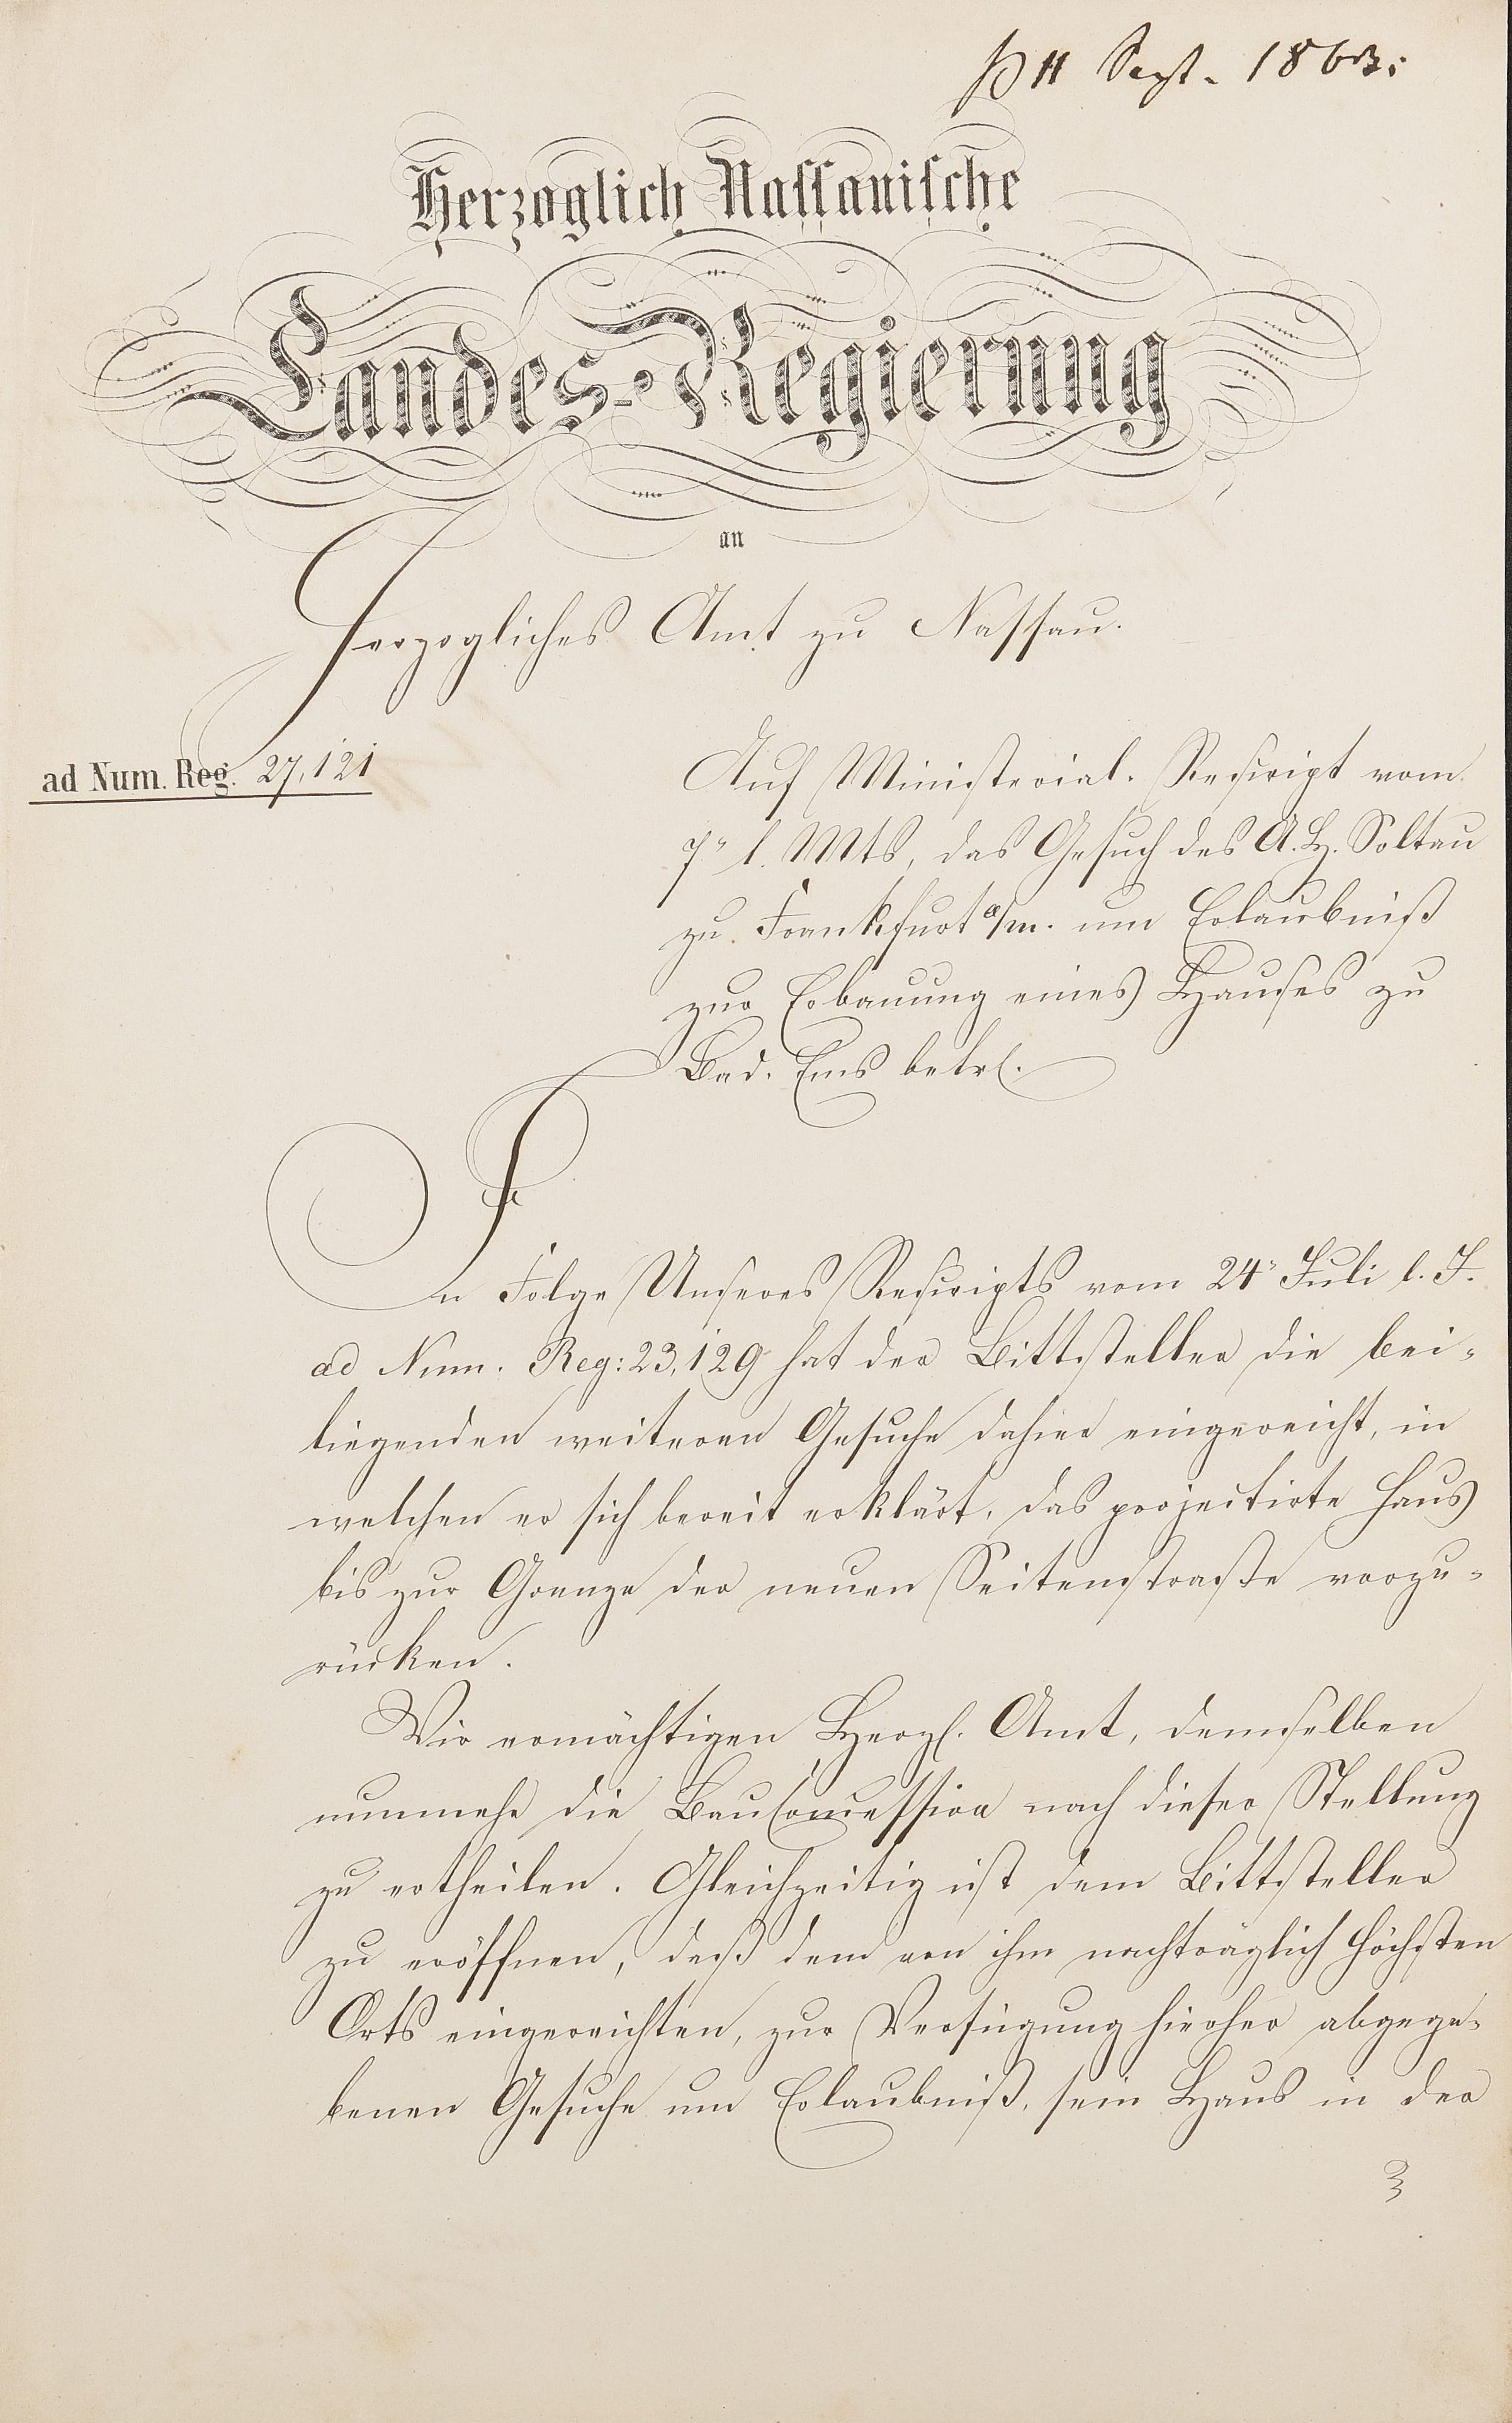 11 Sept. 1863.
Herzoglich Nassauische
Landes-Regierung
an
Herzogliches Amt zu Nassau.
ad Num. Reg. 27,121
Auf Ministerial-Rescript vom
7n l. Mts, das Gesuch des A. H. Soltau
zu Frankfurt a/m. um Erlaubniß
zur Erbauung eines Hauses zu
Bad-Ems betrf.
In Folge Unseres Rescripts vom 24n Juli l. J.
ad Num. Reg: 23,129 hat der Bittsteller die bei-
liegenden weiteren Gesuche dahier eingereicht, in
welchen er sich bereit erklärt, das projectirte Haus
bis zur Grenze der neuen Seitenstraße vorzu-
rücken.
Wir ermächtigen Herzgl. Amt, demselben
nunmehr die Bauconcession nach dieser Stellung
zu ertheilen. Gleichzeitig ist dem Bittsteller
zu eröffnen, daß dem von ihm nachträglich Höchsten
Orts eingereichten, zur Verfügung hierher abgege-
benen Gesuche um Erlaubniß, sein Haus in der